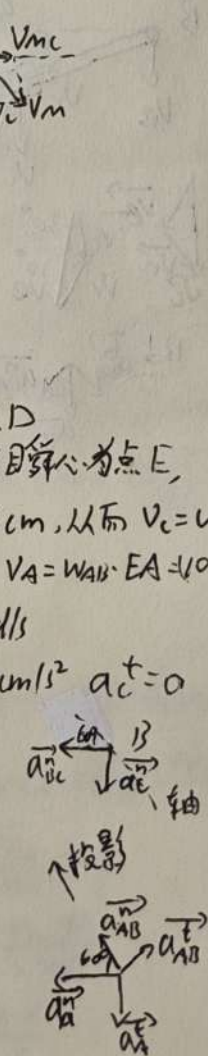 V_MC
V_M
D
瞬心为点E,
cm,从而 V_C=
V_A=W_AB·EA=40
/s
cm/s² a_C^t=0
60° B
a_BC^n a_C^n
轴
投影
a_AB^n
60° a_AB^t
a_A^n
a_A^t